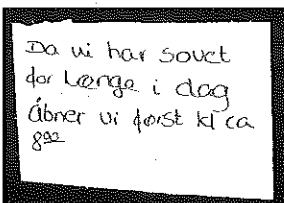 Da vi har sovet
for længe i dag
åbner vi først kl ca
8⁰⁰